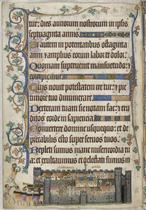 tur: dies annorum nostrorum in ipsis
septuaginta annis.
autem in potentatibus octoginta
anni: et amplius eorum labor et dolor
Quoniam supervenit mansuetudo: et
Quis novit potestatem ire tue: et pre
timore tuo dinumerare
Dexteram tuam sic notam fac: et eru
ditos corde in sapientia
Convertere domine usquequo: et de
precabilis esto super servos tuos
Repleti sumus mane misericordia tua
et exultavimus et delectati sumus in